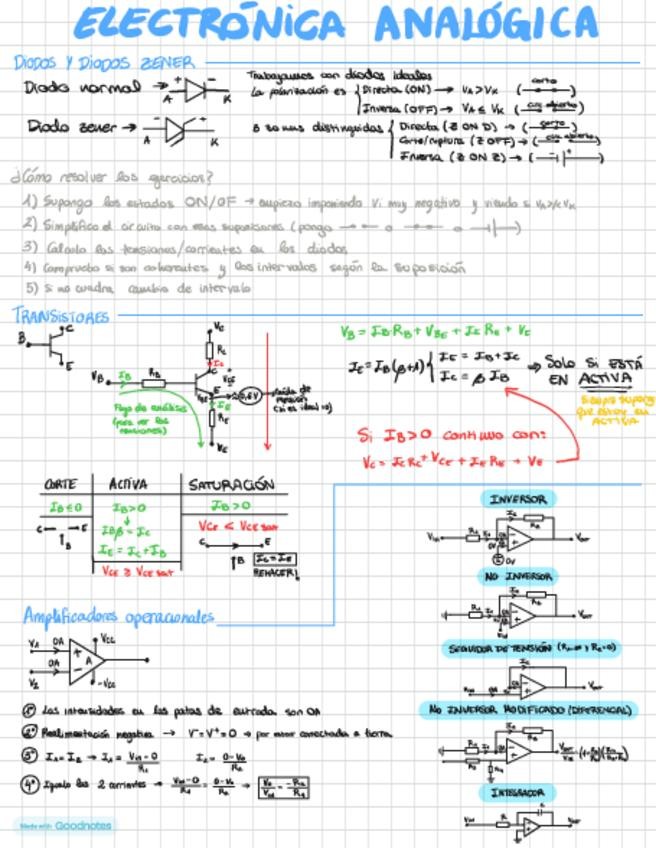 ELECTRÓNICA ANALÓGICA
DIODOS Y DIODOS ZENER
Diodo normal → A + - K
Trabajamos con diodos ideales
La polarización es { Directa (ON) → VA > VK ( corto )
Inversa (OFF) → VA ≤ VK ( cir. abierto )
Diodo zener → A + - K
3 zonas distinguidas { Directa (Z ON D) → ( corto )
Corte/ruptura (Z OFF) → ( cir. abierto )
Inversa (Z ON Z) → ( )
¿Cómo resolver los ejercicios?
1) Supongo los estados ON/OF → empiezo imponiendo Vi muy negativo y viendo si VA>/<VK
2) Simplifico el circuito con esas suposiciones (pongo o o )
3) Calculo las tensiones/corrientes en los diodos
4) Compruebo si son coherentes y los intervalos según la suposición
5) Si no cuadra, cambio de intervalo
TRANSISTORES
B C E
VB IB RB VC RC IC VCE VBE 0,6V IE RE VE
Flujo de análisis (para ver las tensiones)
caída de tensión (si es ideal 0)
VB = IB RB + VBE + IE RE + VE
IE = IB(β+1) { IE = IB + IC
IC = β IB
⇒ SOLO SI ESTÁ EN ACTIVA
Siempre supongo que estoy en ACTIVA
Si IB>0 continuo con:
VC = IC RC + VCE + IE RE + VE
CORTE ACTIVA SATURACIÓN
IB ≤ 0 IB>0 IB>0
C E B
IBβ = IC
IE = IC + IB
VCE ≥ VCE sat
VCE < VCE sat
C E B
IC = IE
REHACER!
Amplificadores operacionales
V1 0A VCC
V2 0A A -VCC
1º Las intensidades en las patas de entrada son 0A
2º Realimentación negativa → V- = V+ = 0 → por estar conectada a tierra
3º I1 = I2 → I1 = Vin-0/R1 I2 = 0-Vo/R2
4º Igualo las 2 corrientes → Vin-0/R1 = 0-Vo/R2 → Vo/Vin = -R2/R1
INVERSOR
NO INVERSOR
SEGUIDOR DE TENSIÓN
NO INVERSOR MODIFICADO (DIFERENCIAL)
INTEGRADOR
Made with Goodnotes